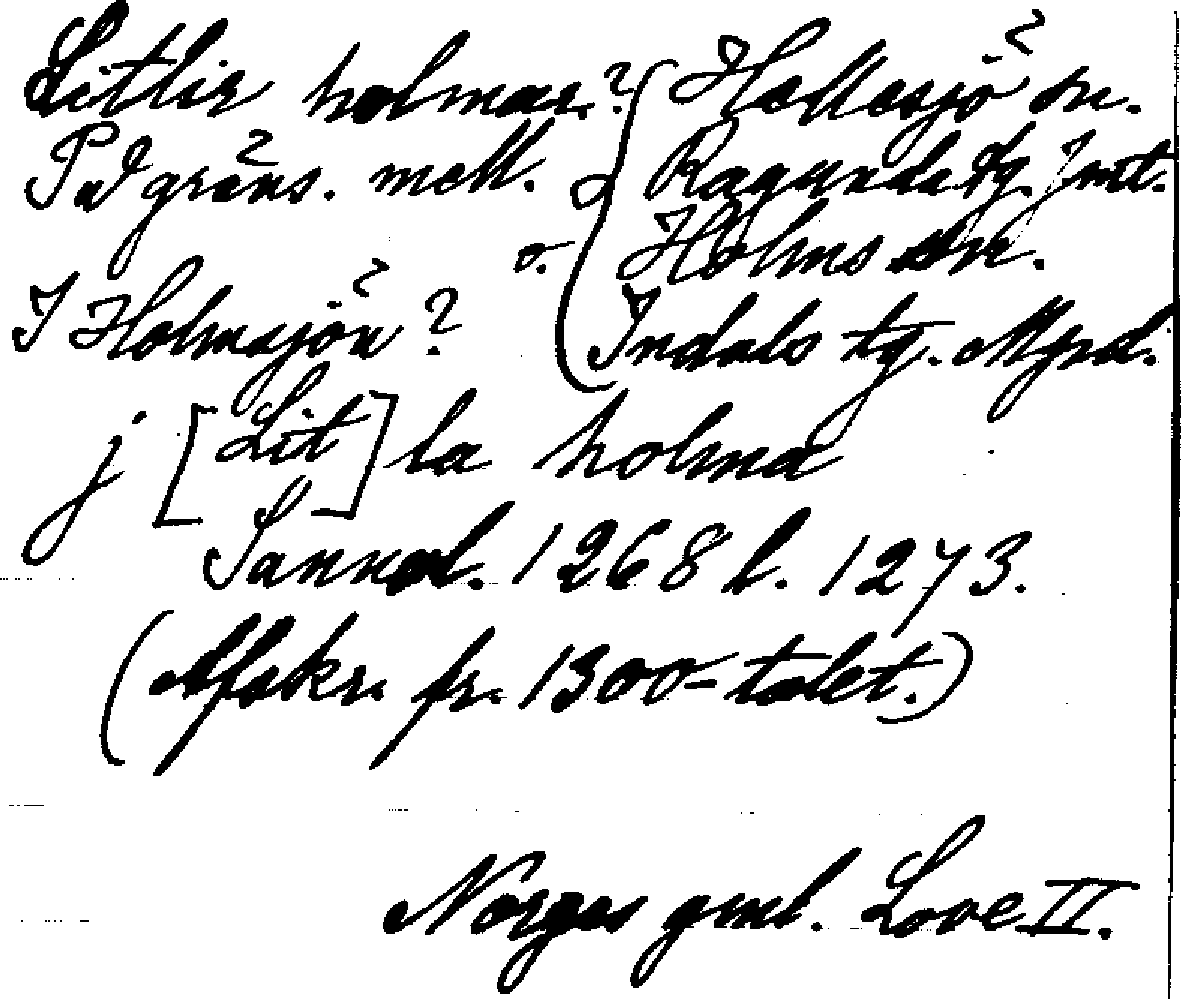 Litlir holmar? Hällesjö sn.
På gräns. mell. Ragunda tg. Jmt.
o. Holms sn.
I Holmsjön? Indals tg. Mpd.
j [Lit] la holma
Sannol. 1268 l. 1273.
(Afskr. fr. 1300-talet.)
Norges gml. Love II.